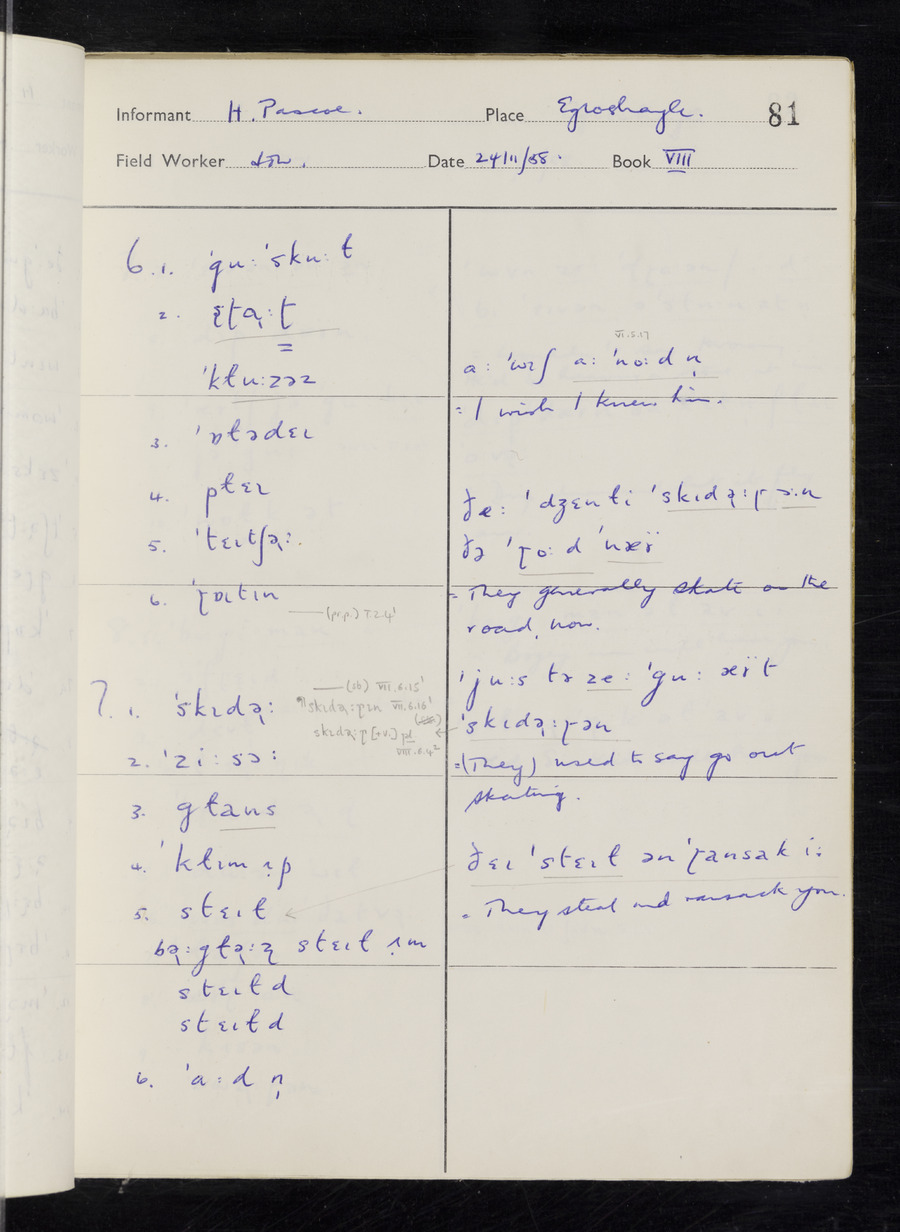 Informant H. Pascoe. Place Egloshayle. 81
Field Worker Date 24/11/58. Book VIII
6.1. ˈgu:ˈsku:ɫ
2.
ˈkɫu:zəz
3. ˈɒɫədɛɪ
4. pɫɛɪ
5.
6. ˈɽɒɪtɪn
(pr.p.) I.2.4¹
7.1. ˈskɪdə̢:
(sb) VII.6.15¹
ˈskɪdə̢:ɽɪn VII.6.16¹
skɪdə̢:ɽ [+v.] pl
VIII.8.4²
2. ˈzi:sɔ:
3. gɫans
4. ˈkɫɪm ɪp
5. stɛɪɫ
bə̢:gɫə̢:z̢ stɛɪɫ ɪm
stɛɪɫd
stɛɪɫd
6. ˈa:d n̩
VI.5.17
a: ˈwɪʃ a: ˈno:d n̩
= I wish I knew him.
ðɛ: ˈdʒɛnɫi ˈskɪdə̢:ɽɔ:n
ðə ˈɽo:d ˈnæʏ̈
= They generally skate on the
road, now.
ˈju:s tə zɛ: ˈgu: æʏ̈t
ˈskɪdə̢:ɽən
= (They) used to say go out
skating.
ðɛɪ ˈstɛɪɫ ən ˈɽansak i:
= They steal and ransack you.